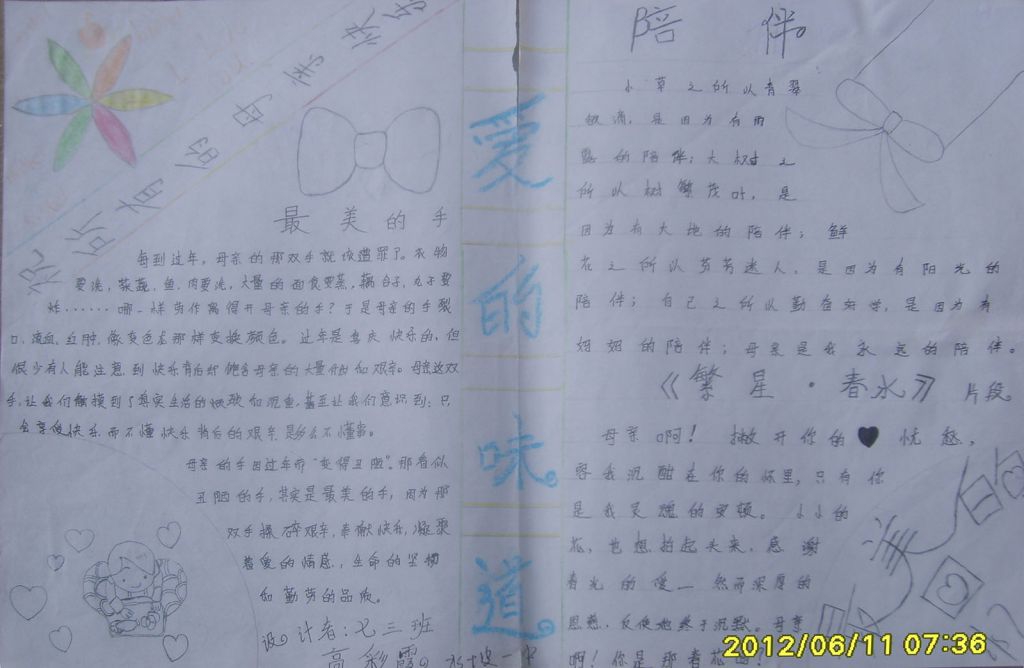 祝所有的母亲快乐
最美的手
每到过年，母亲的那双手就该遭罪了。衣物
要洗，蔬菜、鱼、肉要洗，大量的面食要蒸，藕合子，丸子要
炸……哪一样劳作离得开母亲的手？于是母亲的手裂
口、流血、红肿，像变色龙那样变换颜色。过年是喜庆快乐的，但
很少有人能注意到快乐背后却饱含母亲的大量付出和艰辛。母亲这双
手，让我们触摸到了真实生活的
和沉重，甚至让我们意识到：只
会享受快乐而不懂快乐背后的艰辛是多么不懂事。
母亲的手因过年而“变得丑陋”。那看似
丑陋的手，其实是最美的手，因为那
双手操碎艰辛，奉献快乐，凝聚
着爱的情感，生命的坚韧
和勤劳的品质。
设计者：七三班
高彩霞。
一中
爱的味道
陪伴
小草之所以青翠
欲滴，是因为有雨
露的陪伴；大树之
所以树繁茂叶，是
因为有大地的陪伴；鲜
花之所以芬芳迷人，是因为有阳光的
陪伴；自己之所以勤奋好学，是因为有
妈妈的陪伴；母亲是我永远的陪伴。
《繁星·春水》片段
母亲啊！撇开你的忧愁，
容我沉酣在你的怀里，只有你
是我灵魂的安顿。小小的
花，也想抬起头来，感谢
春光的爱—然而深厚的
恩慈，反使她终于沉默。母亲
啊！你是那春光吗！
美
的
2012/06/11 07:36